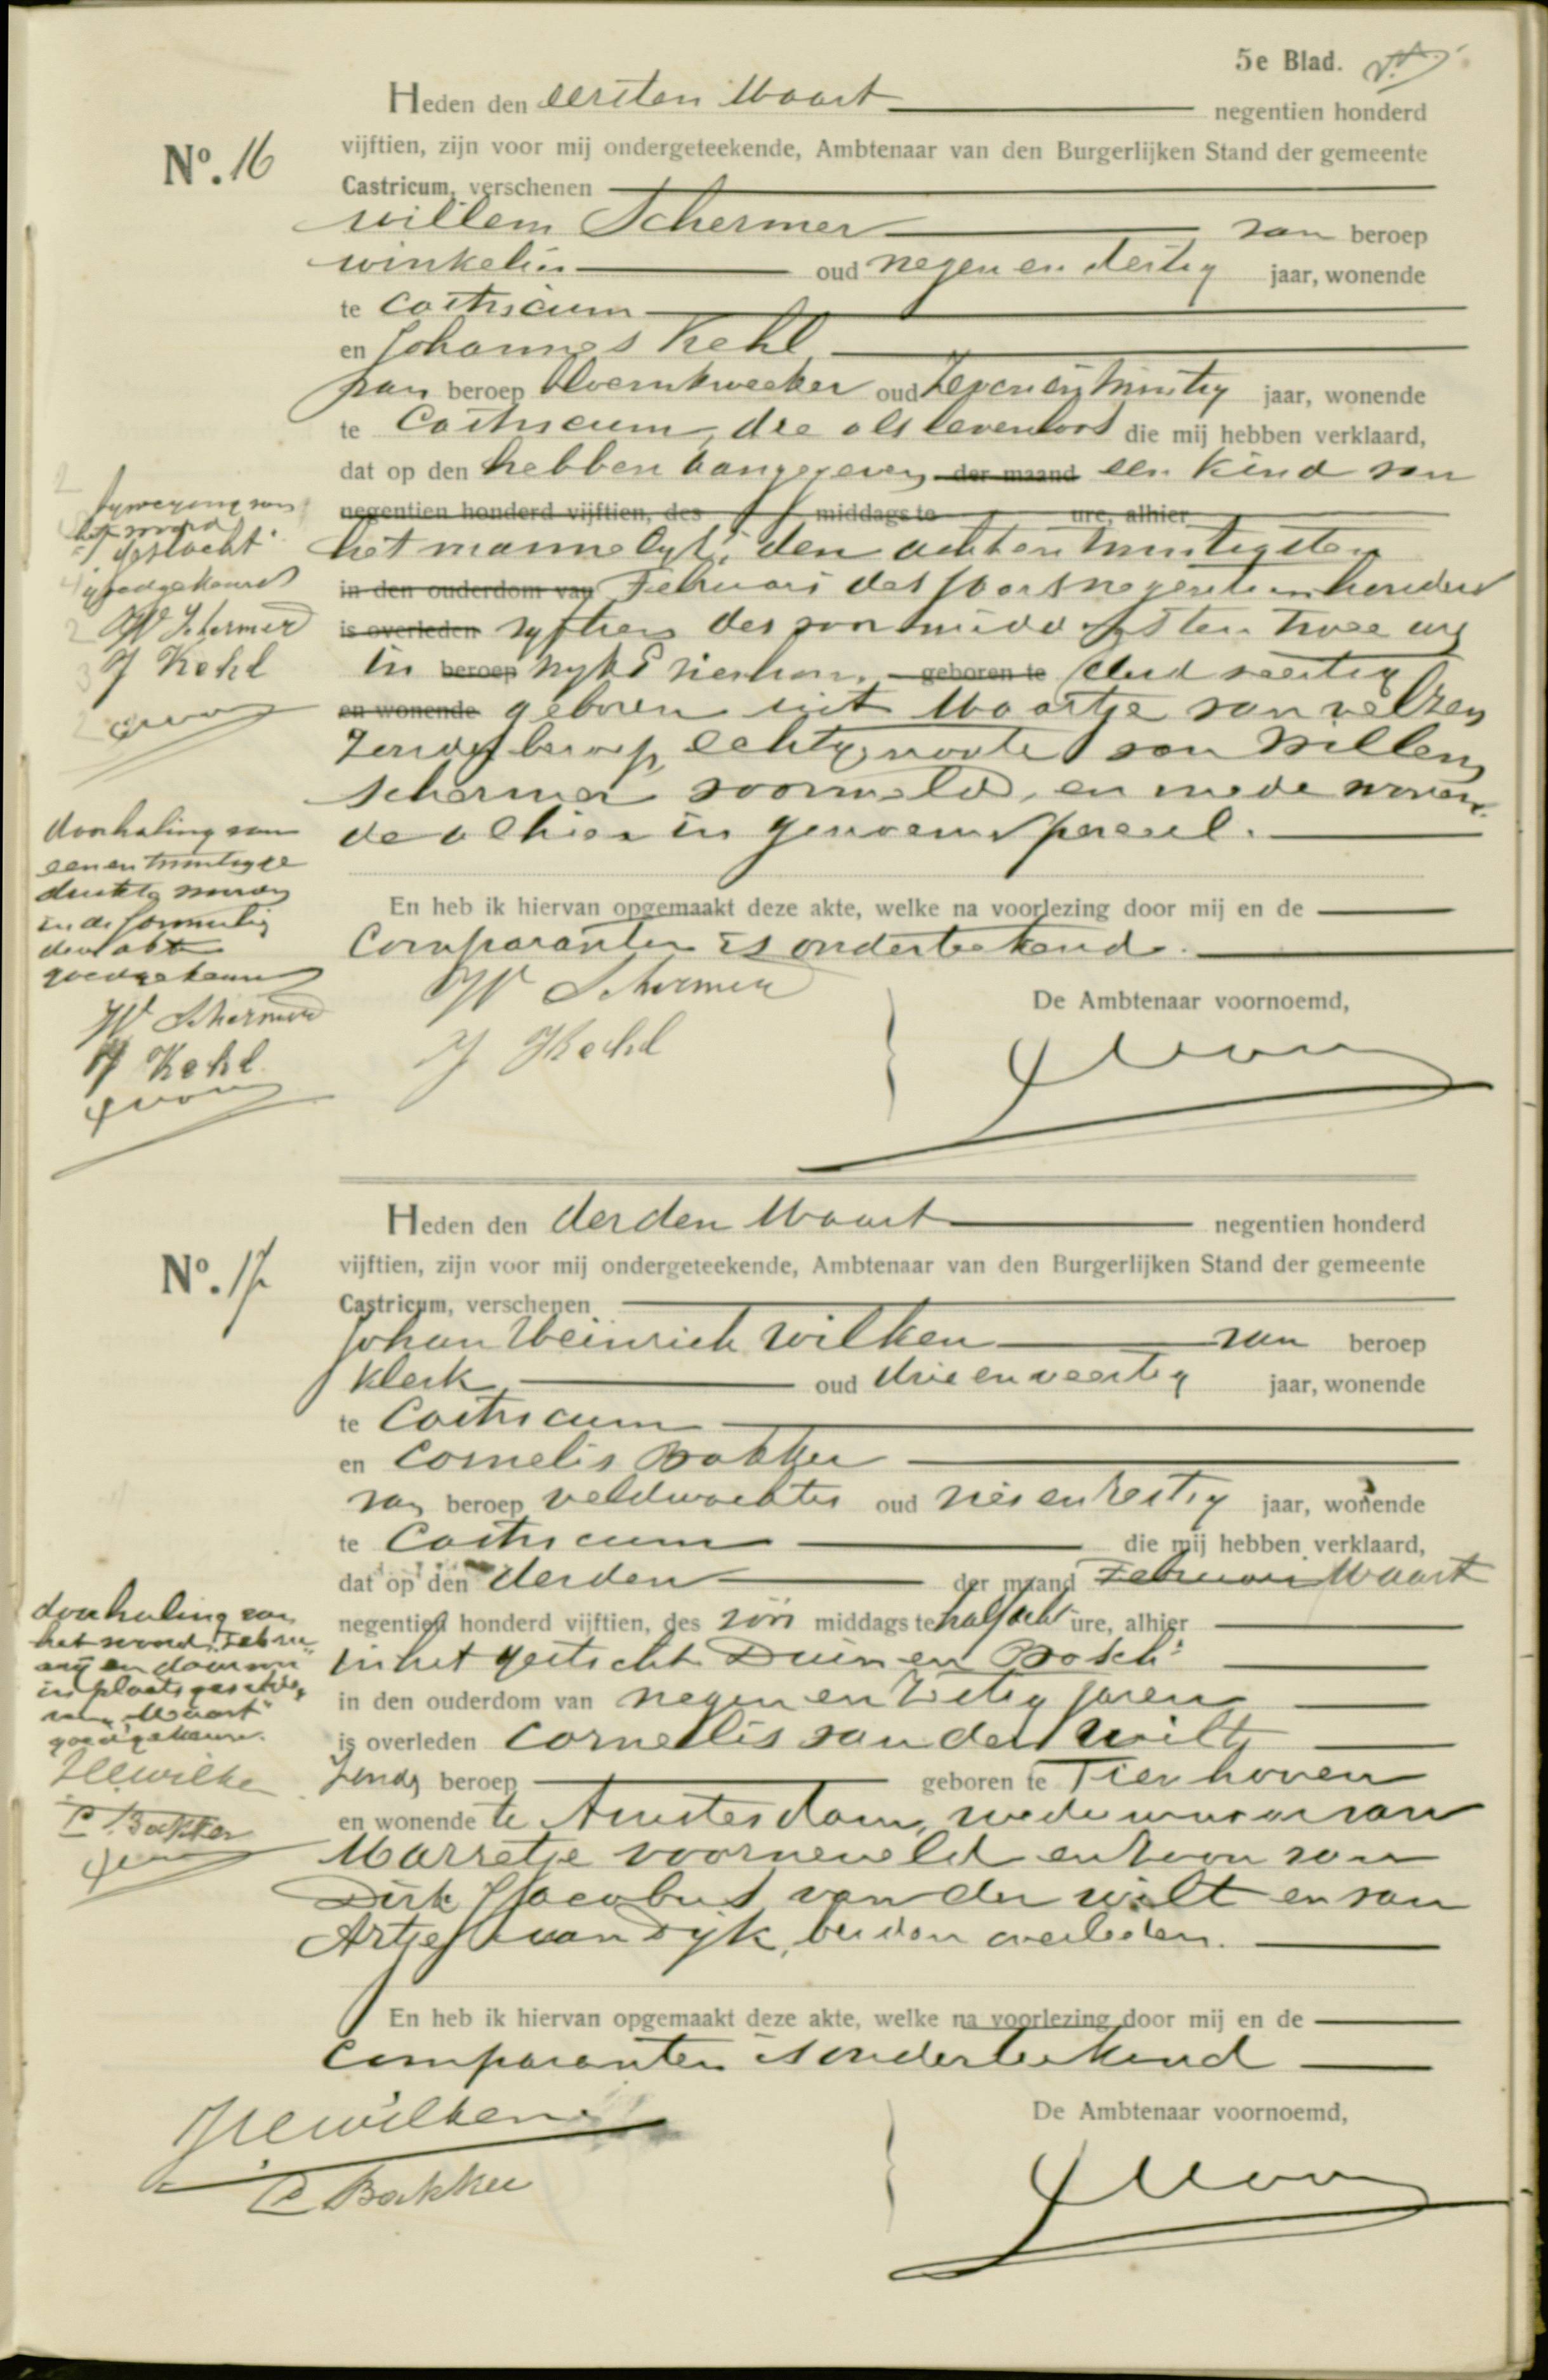 5e Blad.
Heden den eersten Maart negentien honderd
No. 16
vijftien, zijn voor mij ondergeteekende, Ambtenaar van den Burgerlijken Stand der gemeente
Castricum, verschenen
Willem Schermer van beroep
winkelier oud negen en dertig jaar, wonende
te Castricum
en Johannes Kehl
van beroep bloemkweeker oud zeven en twintig jaar, wonende
te Castricum, die als levenloos die mij hebben verklaard,
dat op den hebben aangegeven der maand een kind van
negentien honderd vijftien, des middags te ure, alhier
het mannelijk, den acht en twintigsten
in den ouderdom van Februari des jaars negentienhonderd
is overleden vyftien des voormiddags ten twee ure
in beroep wyk geboren te veertig
en wonende geboren uit Maartje van Velzen
zonder beroep, echtgenoote van Willem
Schermer voormeld, en mede wonen-
de alhier in genoemd perceel.
byvoeging van
het woord
"geslacht"
goedgekeurd
W Schermer
J Kehl
doorhaling van
een en twintig ge
drukte woorden
in de formulier
goedgekeurd
W Schermer
J Kehl
En heb ik hiervan opgemaakt deze akte, welke na voorlezing door mij en de
Comparanten is onderteekend.
W Schermer
J Kehl
De Ambtenaar voornoemd,
Heden den derden Maart negentien honderd
No. 17
vijftien, zijn voor mij ondergeteekende, Ambtenaar van den Burgerlijken Stand der gemeente
Castricum, verschenen
Johan Heinrich Wilken van beroep
klerk, oud drie en veertig jaar, wonende
te Castricum
en Cornelis Bakker
van beroep veldwachter oud vier en zestig jaar, wonende
te Castricum die mij hebben verklaard,
dat op den derden der maand Februari Maart
negentien honderd vijftien, des voor middags te half acht ure, alhier
in het gesticht "Duin en Bosch"
in den ouderdom van negen en zestig jaren
is overleden Cornelis van der Wilt,
zonder beroep geboren te Tienhoven
en wonende te Amsterdam, weduwnaar van
Marretje Voorneveld en zoon van
Dirk Jacobus van der Wilt en van
Artje van Dijk, beiden overleden.
doorhaling van
het woord "Febru
ary" en daarvoor
in plaats gesteld
van "Maart"
goedgekeurd.
JHWilken
C Bakker
En heb ik hiervan opgemaakt deze akte, welke na voorlezing door mij en de
Comparanten is onderteekend
JHWilken
C Bakker
De Ambtenaar voornoemd,